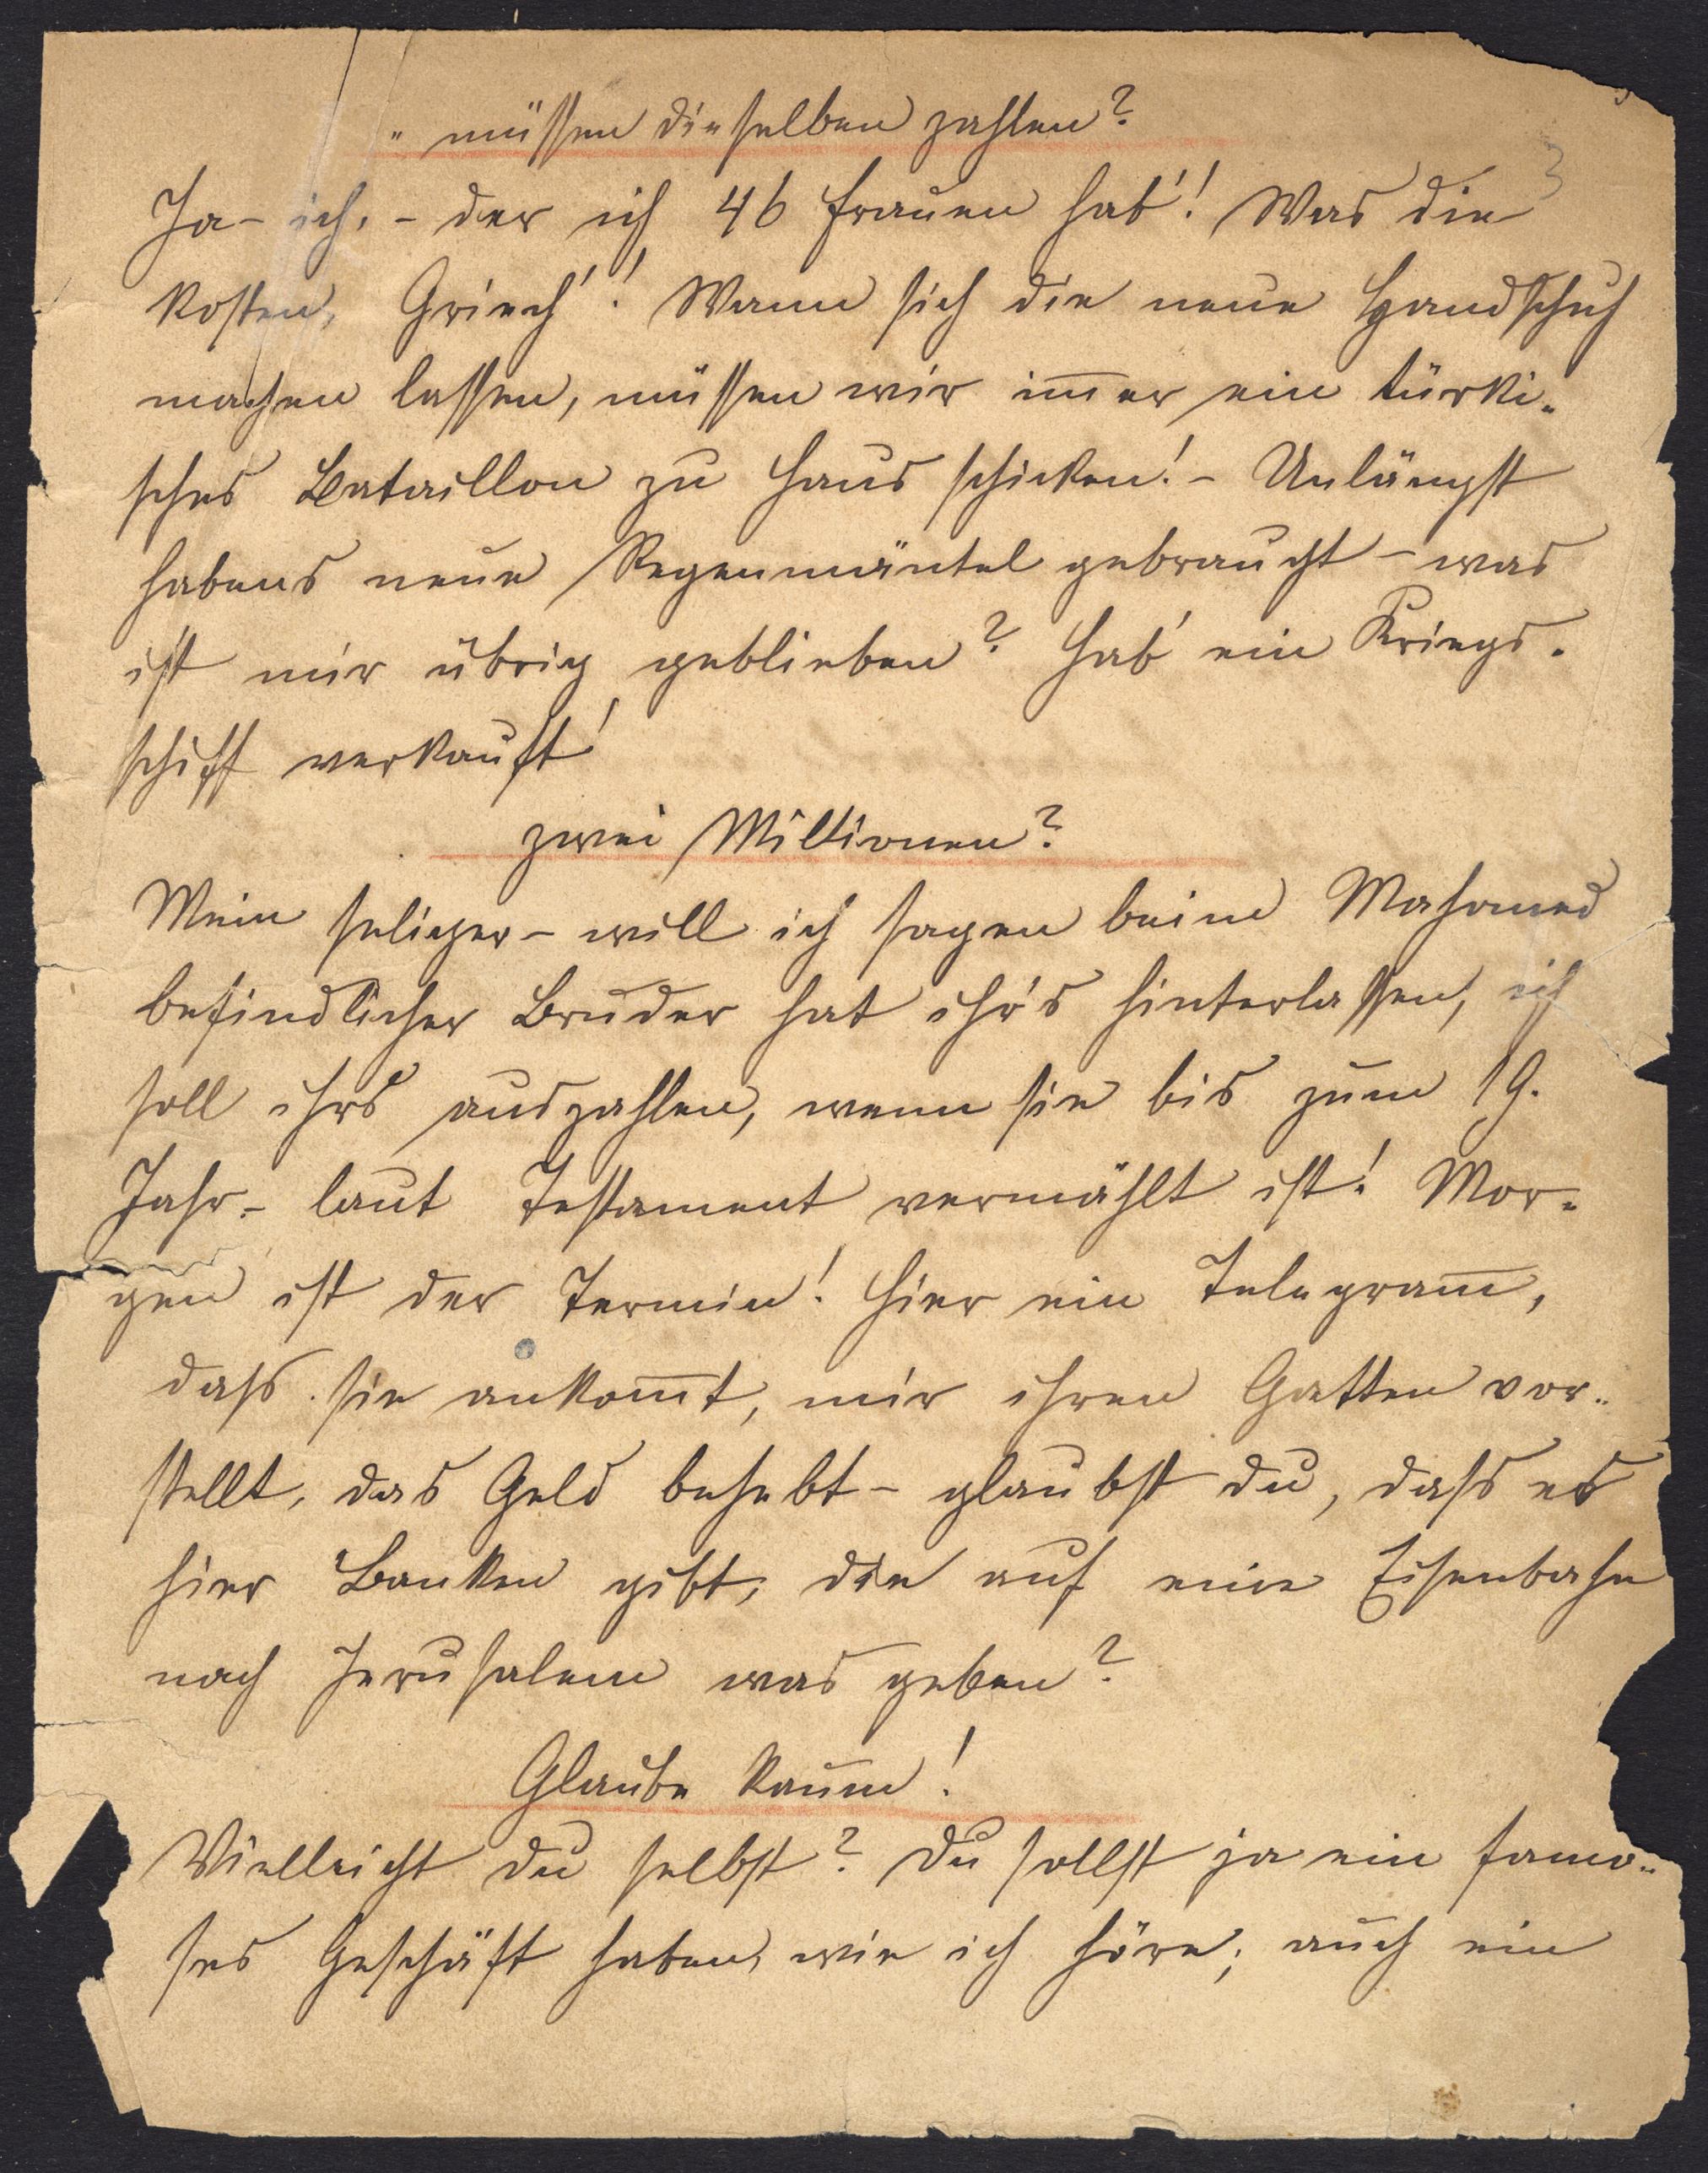 „ müssen dieselben zahlen?
3
Ja - ich, - der ich 46 Frauen hab'! Was die
kosten, Griech'! Wann sich die neue Handschuh
machen lassen, müssen wir im̅er ein türki-
sches Bataillon zu Haus schicken! - Unlängst
habens neue Regenmäntel gebraucht - was
ist mir übrig geblieben? Hab' ein Kriegs-
schiff verkauft!
zwei Millionen?
Mein seliger - will ich sagen beim Mahomed
befindlicher Bruder hat ihr's hinterlassen, ich
soll ihrs auszahlen, wenn sie bis zum 19.
Jahr - laut Testament vermählt ist! Mor-
gen ist der Termin! Hier ein Telegram̅,
dass sie ankom̅t, mir ihren Gatten vor-
stellt, das Geld behebt - glaubst du, dass es
hier Banken gibt, die auf eine Eisenbahn
nach Jerusalem was geben?
Glaube kaum!
Vielleicht du selbst? Du sollst ja ein famo-
ses Geschäft haben, wie ich höre; auch ein